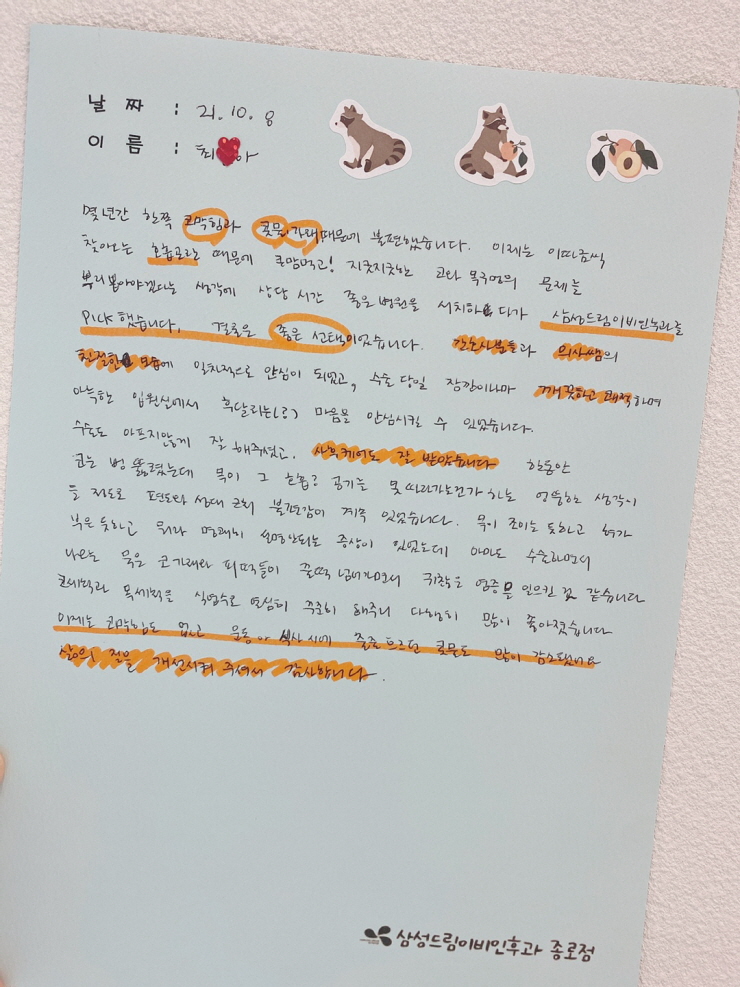 날 짜 : 21. 10. 8
이 름 : 최 아
몇년간 한쪽 코막힘과 콧물, 가래때문에 불편했습니다. 이제는 이따금씩
찾아오는 호흡곤란 때문에 큰맘먹고! 지긋지긋한 코와 목구멍의 문제를
뿌리뽑아야겠다는 생각에 상당 시간 좋은 병원을 서치하다가 삼성드림이비인후과를
PICK 했습니다. 결론은 좋은 선택이었습니다. 간호사분들과 의사쌤의
친절한 모습에 일차적으로 안심이 되었고, 수술 당일 잠깐이나마 깨끗하고 쾌적하며
아늑한 입원실에서 혹달리는(?) 마음을 안심시킬 수 있었습니다.
수술도 아프지않게 잘 해주셨고, 사후케어도 잘 받았습니다 한동안
코는 뻥 뚫렸는데 목이 그 호흡? 공기를 못 따라가는건가 하는 엉뚱한 생각이
들 정도로 편도와 성대 근처 불편감이 계속 있었습니다. 목이 조이는 듯하고 혀가
부은 듯하고 뭐라 명쾌히 설명안되는 증상이 있었는데 아마도 수술하면서
나오는 묵은 코가래와 피떡들이 꿀떡 넘어가면서 귀찮은 염증을 일으킨 것 같습니다
코세척과 목세척을 식염수로 열심히 꾸준히 해주니 다행히 많이 좋아졌습니다
이제는 코막힘도 없고 운동 식사 시에 줄줄 흐르던 콧물도 많이 감소됐어요
삶의 질을 개선시켜 주셔서 감사합니다.
삼성드림이비인후과 종로점